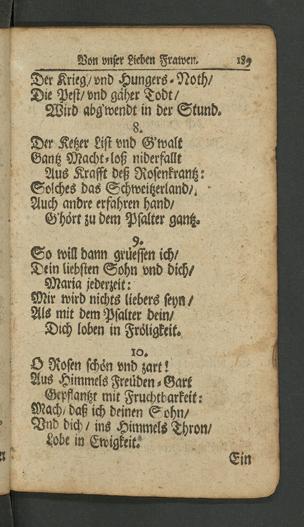 Von vnser Lieben Frawen. 189
Der Krieg/ vnd Hungers-Noth/
Die Pest/ vnd gäher Todt/
Wird abg'wendt in der Stund.
8.
Der Ketzer List vnd G'walt
Gantz Macht-loß niderfallt
Aus Krafft deß Rosenkrantz:
Solches das Schweitzerland/
Auch andre erfahren hand/
G'hört zu dem Psalter gantz.
9.
So will dann grüessen ich/
Dein liebsten Sohn vnd dich/
Maria jederzeit:
Mir wird nichts liebers seyn/
Als mit dem Psalter dein/
Dich loben in Fröligkeit.
10.
O Rosen schön vnd zart!
Aus Himmels Freüden-Gart
Gepflantzt mit Fruchtbarkeit:
Mach/ daß ich deinen Sohn/
Vnd dich/ ins Himmels Thron/
Lobe in Ewigkeit.
Ein